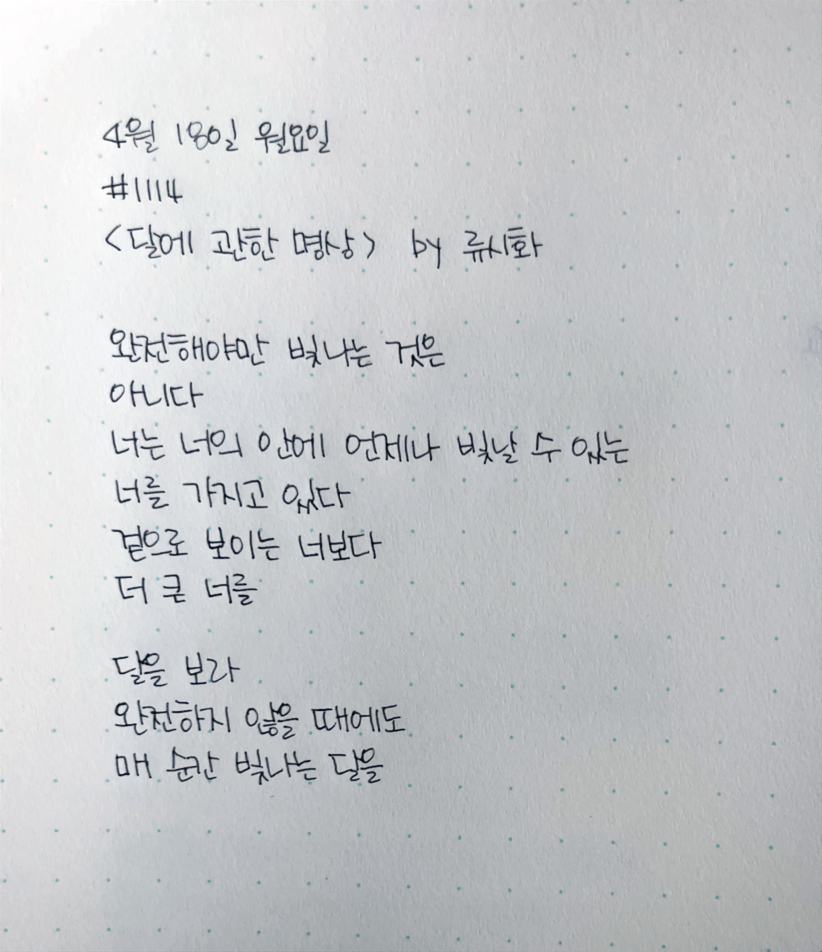 4월 18일 월요일
#1114
<달에 관한 명상> by 류시화
완전해야만 빛나는 것은
아니다
너는 너의 안에 언제나 빛날 수 있는
너를 가지고 있다
겉으로 보이는 너보다
더 큰 너를
달을 보라
완전하지 않을 때에도
매 순간 빛나는 달을